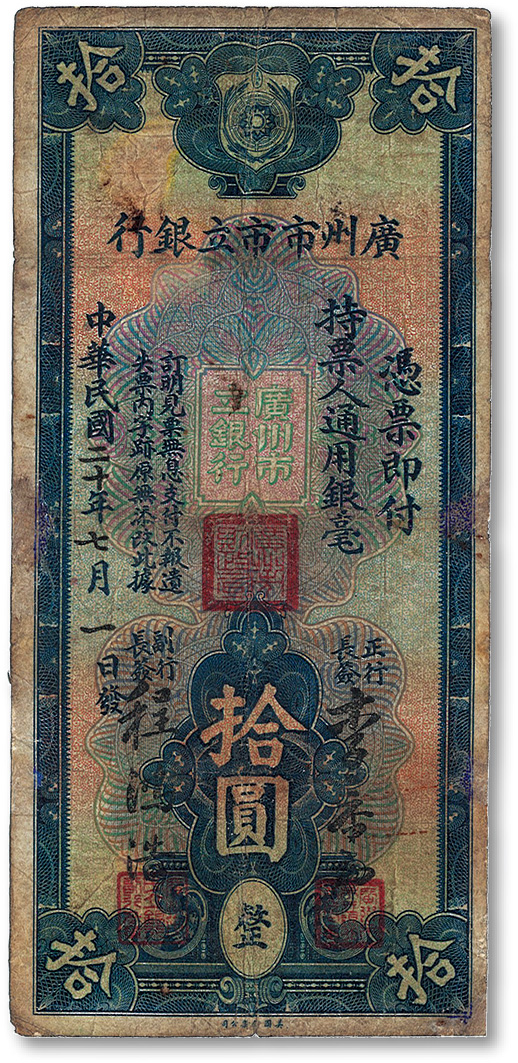 拾 拾
廣州市市立銀行
憑票即付
持票人通用銀毫
廣州市
立銀行
拾圓
整
訂明見票無息支付不報遺
失票內字跡原無添改此據
中華民國二十年七月一日發
正行
長簽
副行
長簽
程
拾 拾